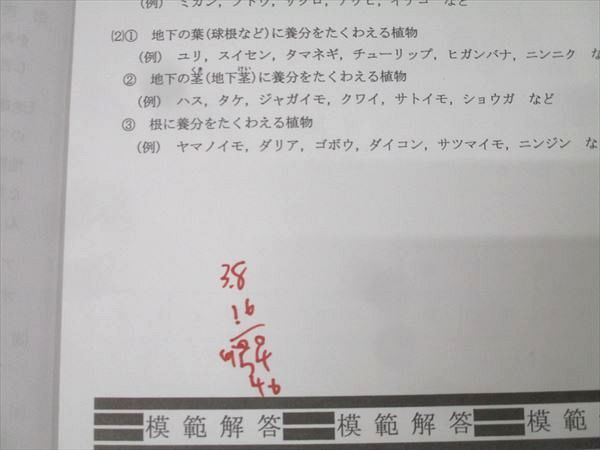 (例) ミカン，ブドウ，ザクロ，アケビ，イチゴ など
(2)① 地下の葉(球根など)に養分をたくわえる植物
(例) ユリ，スイセン，タマネギ，チューリップ，ヒガンバナ，ニンニク な
② 地下の茎(地下茎)に養分をたくわえる植物
(例) ハス，タケ，ジャガイモ，クワイ，サトイモ，ショウガ など
③ 根に養分をたくわえる植物
(例) ヤマノイモ，ダリア，ゴボウ，ダイコン，サツマイモ，ニンジン な
3.8
模範解答 模範解答 模範